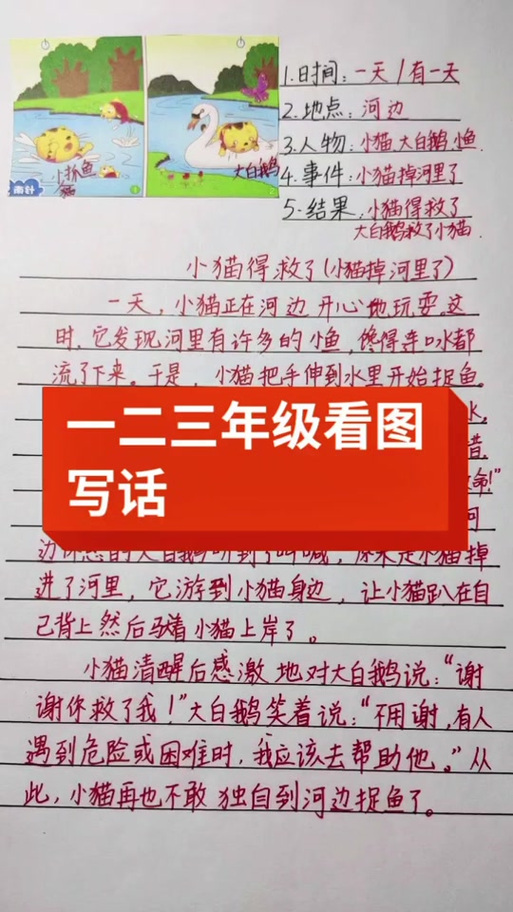 1.时间：一天/有一天
2.地点：河边
3.人物：小猫 大白鹅 小鱼.
4.事件：小猫掉河里了
5.结果：小猫得救了
大白鹅救了小猫.
小抓鱼
猫
大白鹅
南针
1
2
小猫得救了(小猫掉河里了)
一天，小猫正在河边开心地玩耍.这
时，它发现河里有许多的小鱼，馋得连口水都
流了下来。于是，小猫把手伸到水里开始捉鱼。
水，
命！"
一二三年级看图
写话
进了河里，它游到小猫身边，让小猫趴在自
己背上然后驮着小猫上岸了。
小猫清醒后感激地对大白鹅说："谢
谢你救了我！"大白鹅笑着说："不用谢，有人
遇到危险或困难时，我应该去帮助他。"从
此，小猫再也不敢独自到河边捉鱼了。